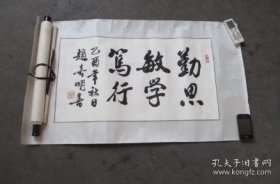 勤思
敏学
笃行
乙酉年秋日
赵寿明书
孔夫子旧书网